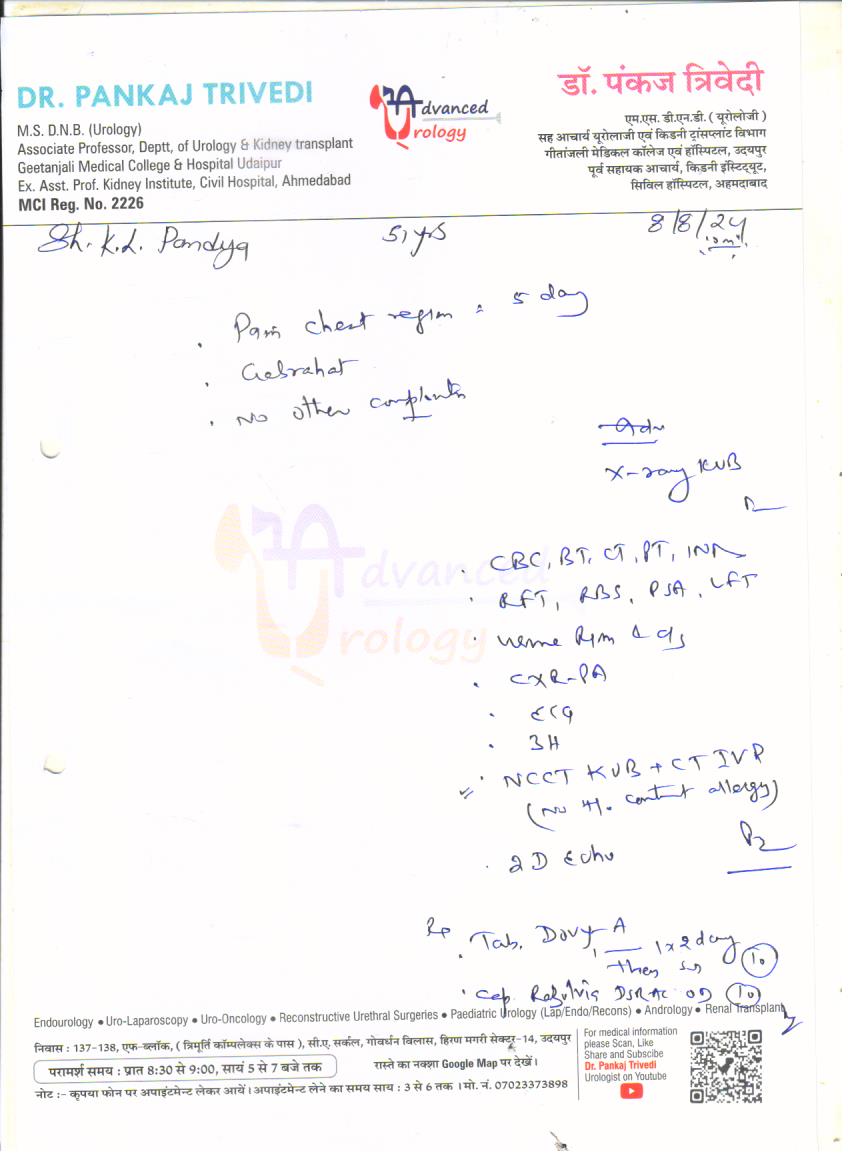 DR. PANKAJ TRIVEDI
M.S. D.N.B. (Urology)
Associate Professor, Deptt, of Urology & Kidney transplant
Geetanjali Medical College & Hospital Udaipur
Ex. Asst. Prof. Kidney Institute, Civil Hospital, Ahmedabad
MCI Reg. No. 2226
Advanced
Urology
डॉ. पंकज त्रिवेदी
एम.एस. डी.एन.डी. ( यूरोलोजी )
सह आचार्य यूरोलाजी एवं किडनी ट्रांसप्लांट विभाग
गीतांजली मेडिकल कॉलेज एवं हॉस्पिटल, उदयपुर
पूर्व सहायक आचार्य, किडनी इंस्टिट्यूट,
सिविल हॉस्पिटल, अहमदाबाद
Sh. K.L. Pandya 51 yrs 8/8/24
Pain chest region 5 day
Gabrahat
No other complaints
Adv
X-ray KUB
CBC, BT, CT, PT, INR
RFT, RBS, PSA, LFT
Urine R/m & c/s
CXR-PA
ECG
3H
NCCT KUB + CT IVP
(No H/o contrast allergy)
2D Echo
Rx
Tab. A 1 x 2 day
then 10
Cap. DSR AC OD 10
Advanced
Urology
Endourology • Uro-Laparoscopy • Uro-Oncology • Reconstructive Urethral Surgeries • Paediatric Urology (Lap/Endo/Recons) • Andrology • Renal Transplant
निवास : 137-138, एफ-ब्लॉक, ( त्रिमूर्ति कॉम्पलेक्स के पास ), सी.ए. सर्कल, गोवर्धन विलास, हिरण मगरी सेक्टर-14, उदयपुर
परामर्श समय : प्रात 8:30 से 9:00, सायं 5 से 7 बजे तक
रास्ते का नक्शा Google Map पर देखें।
नोट :- कृपया फोन पर अपाइंटमेन्ट लेकर आयें। अपाइंटमेन्ट लेने का समय साय : 3 से 6 तक । मो. नं. 07023373898
For medical information
please Scan, Like
Share and Subscibe
Dr. Pankaj Trivedi
Urologist on Youtube